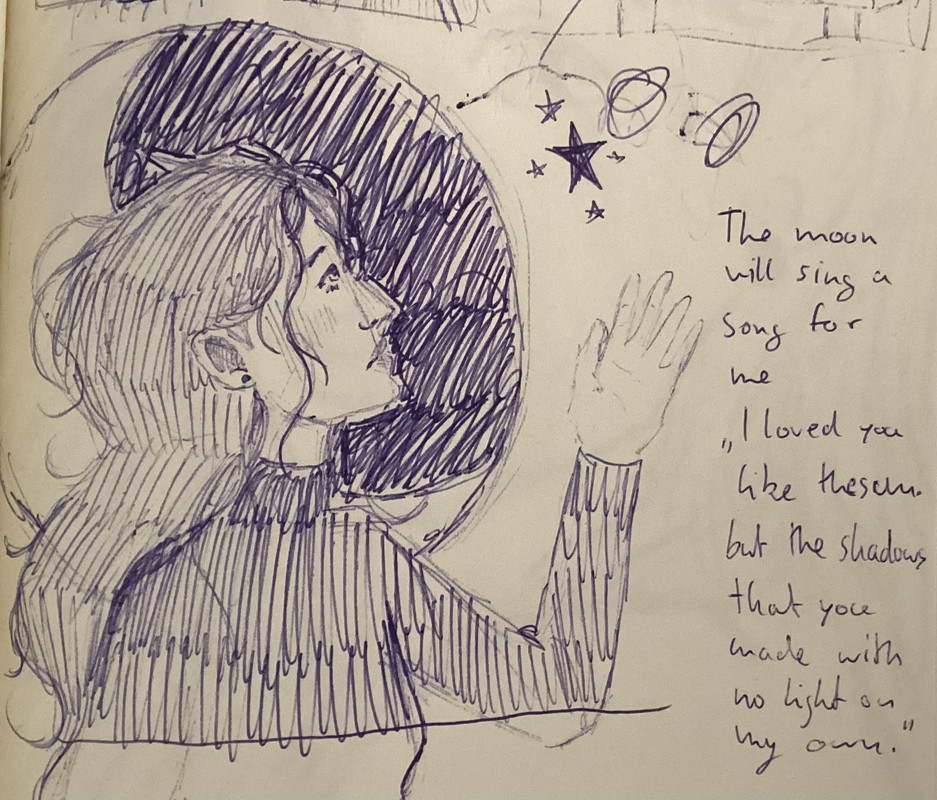 The moon
will sing a
song for
me
„I loved you
like the sun.
but the shadows
that you
made with
no light on
my own."